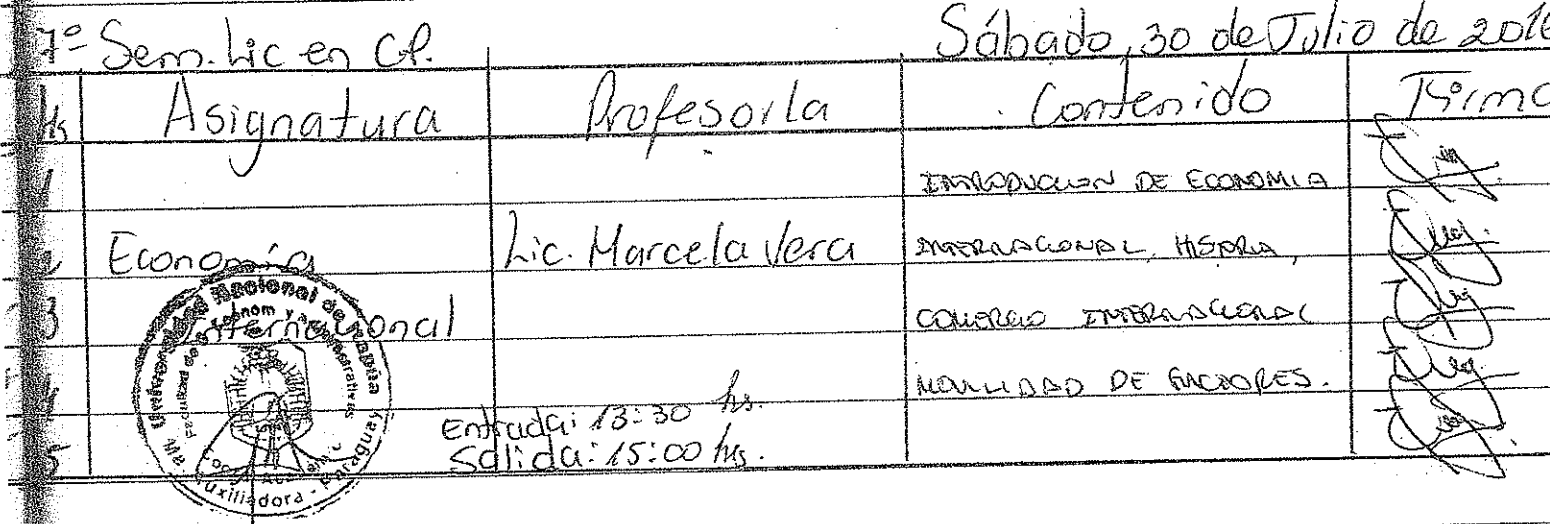 7º Sem. Lic en CP. Sábado, 30 de Julio de 2016
Hs Asignatura Profesor/a Contenido Firma
1 INTRODUCCION DE ECONOMIA
2 Economía Lic. Marcela Vera INTERNACIONAL, HISTORIA,
3 Internacional COMERCIO INTERNACIONAL
4 MOVILIDAD DE FACTORES.
Entrada: 13:30 hs.
5 Salida: 15:00 hs.
Universidad Nacional de Itapúa
Facultad de Econom y Administrativas
Mª Auxiliadora - Paraguay